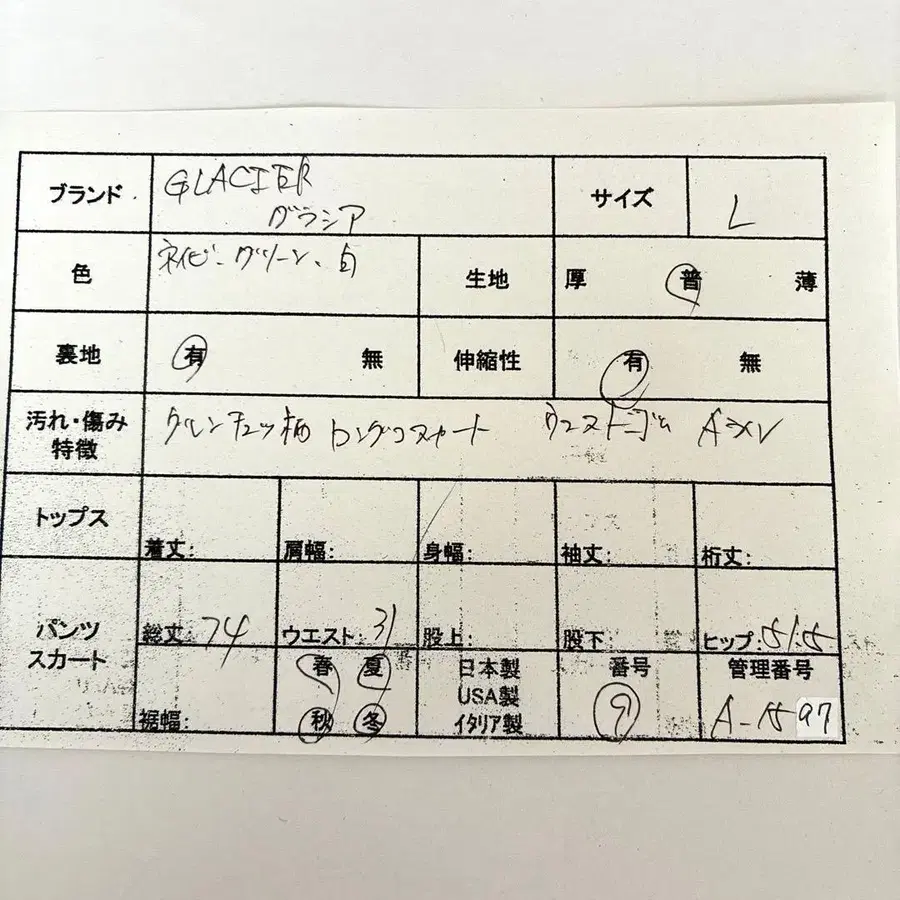 ブランド GLACIER サイズ L
グラシア
色 ネイビー、グリーン、白 生地 厚 普 薄
裏地 有 無 伸縮性 有 無
汚れ・傷み グレンチェック柄 ロングスカート ウエストゴム
特徴
トップス 着丈: 肩幅: 身幅: 袖丈: 桁丈:
パンツ 総丈: 74 ウエスト: 31 股上: 股下: ヒップ: 51.5
スカート
裾幅: 春 夏 日本製 番号 管理番号
秋 冬 USA製 9 A-1597
イタリア製